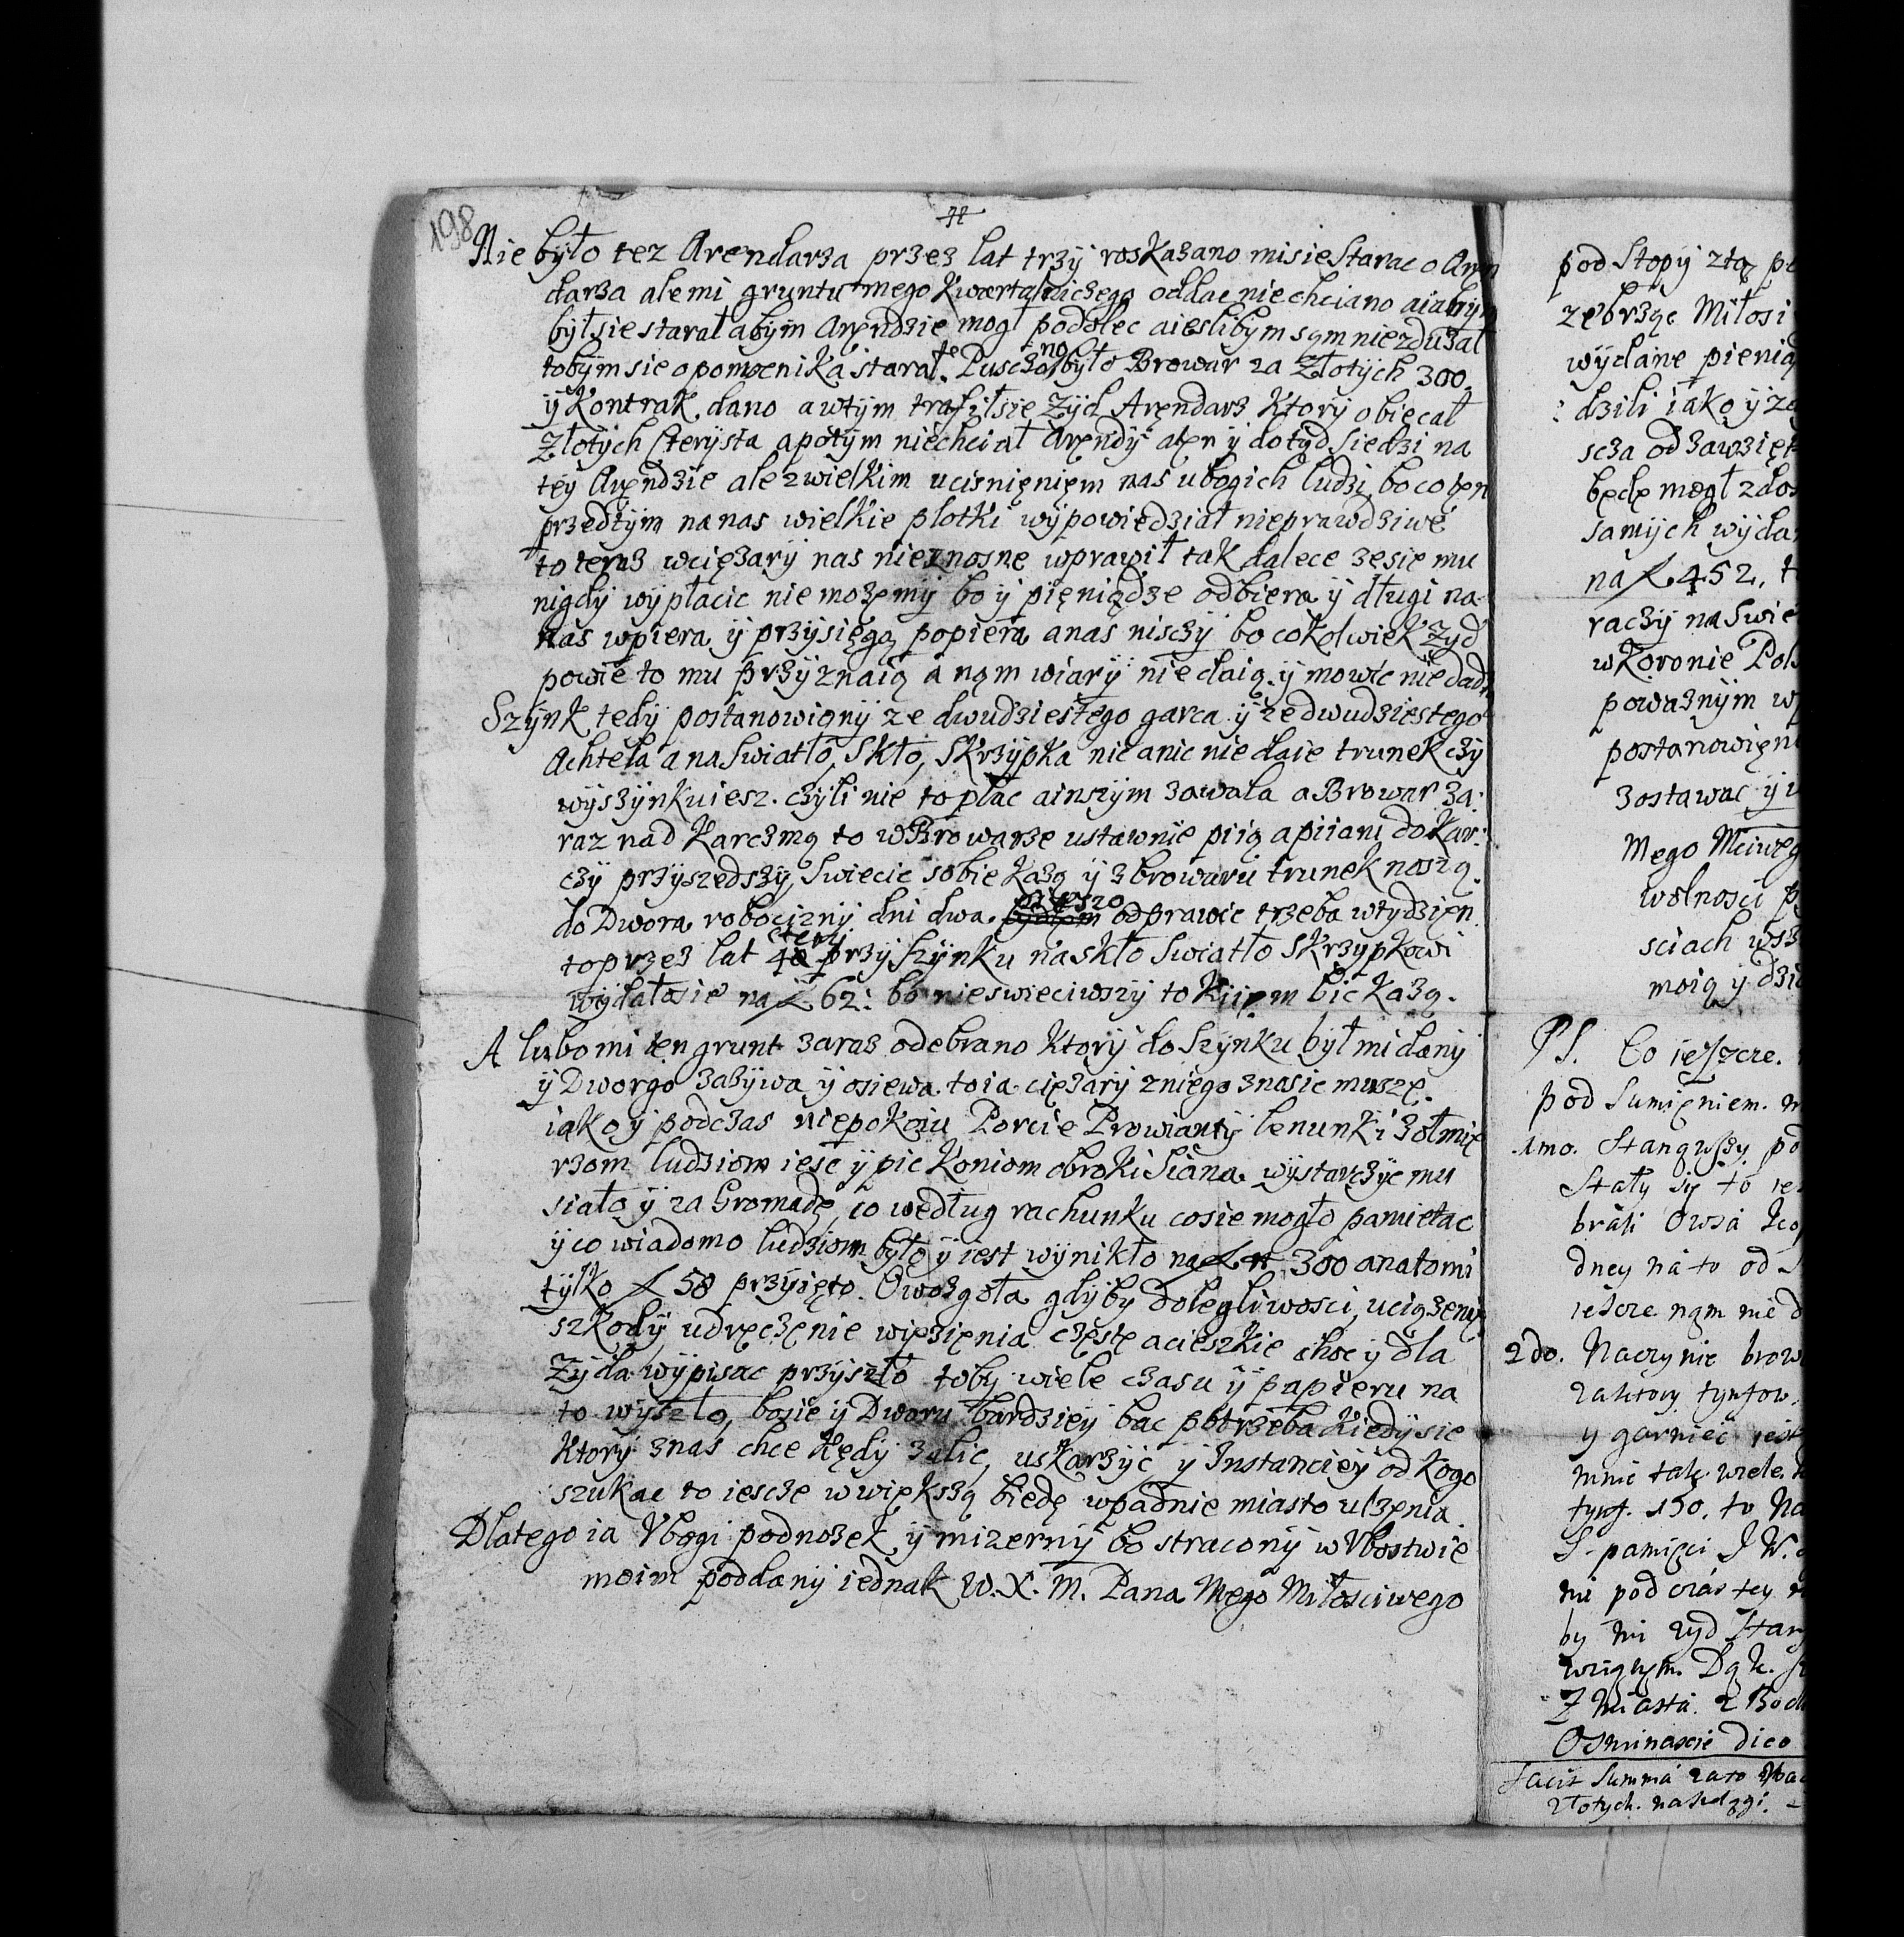 198
Nie było tez Arendarza przez lat trzy roskazano misie Starac o Aren
darza alemi gruntu mego Kwartalniczego oddac niechciano aiabym
byłsie starał abym Arendzie mogł podolec aieslibym sąm niezdużał
tobymsie opomoenika starał. te Pusczono było Browar za Złotych 300.
ÿ Kontrak dano awtym trafiłsie Zÿd Arendarz Ktorÿ obiecał
Złotych Czterÿsta apotÿm niechciał Arendÿ aten ÿ dotÿd siedzi na
teÿ Arendzie ale zwielkim ucisnięnięm nas ubogich ludzi, bo co ten
przedtÿm na nas wielkie plotki wÿpowiedział nieprawdziwe
to teraz wciężarÿ nas nieznosne wprawił tak dalece zesie mu
nigdÿ wÿpłacic nie możemÿ bo ÿ pięniądze odbiera ÿ długi na
nas wpiera ÿ przÿsięgą popiera anas nisczÿ bo cokolwiek Zÿd
powie to mu przÿznaią a nąm wiarÿ nie daią. ÿ mowic nie dadzą
Szÿnk tedÿ postanowionÿ ze dwudziestego garca ÿ ze dwudziestego
Achtela a na Swiatło, Skło, Skrzÿpka nic anic nie daie trunek czÿ
wÿszÿnkuiesz. czÿli nie to płac ainszÿm zawala a Browar za:
raz nad Karczmą to w Browarze ustawnie piią apiiani do Kar:
czÿ przÿszedszÿ, Swiecic sobie każą ÿ z browaru trunek noszą.
do Dwora robociznÿ dni dwa. pieszo odprawic trzeba wtydzięn
toprzez lat cterÿ przÿ Szÿnku na skło Swiatło Skrzypkowi
wÿdałosie na ƒ 62: bo nieswieciwszÿ to Kiięm bic każą.
A lubo mi ten grunt zaraz odebrano Ktorÿ do Szÿnku był mi danÿ
ÿ Dworgo zażÿwa ÿ osiewa. to ia ciężarÿ zniego znasic muszę.
iako ÿ podczas niepokoiu Porcie Prowiantÿ lenunki żołnie
rzom ludziom iesc ÿ pic Koniom obroki Siana wÿstarczÿc mu
siało ÿ za Gromadę, co według rachunku cosie mogło pamietac
ÿ co wiadomo ludziom było ÿ iest wÿnikło na ƒ 300 anatomi
tÿlko ƒ 58 przÿięto. Owozgoła gdÿby dolegliwosci, uciążenie
szkodÿ udręczęnie więzięnia częste acieszkie choc ÿ dla
Zÿda wÿpisac przÿszło toby wiele czasu ÿ papieru na
to wÿszło, bosie ÿ Dworu bardzieÿ bac potrzeba kiedÿsie
Ktorÿ znas chce Kędÿ żalic, uskarżÿc ÿ Instancieÿ od kogo
szukac to iescze w większą biedę wpadnie miasto ulżęnia.
Dlatego ia Vbogi podnożek ÿ mizernÿ bo straconÿ w Vbostwie
moim poddanÿ iednak W.X.M. Pana Mego Miłosciwego
pod Stopÿ
żebrząc Miłosi
wÿdane pienią
dzili iako ÿ
scza odzawzięt
będę mogł zdos
samÿch wÿda
na ƒ 452. t
rachÿ na Swie
w Koronie Pols
poważnÿm w
postanowięn
zostawac ÿ
Mego Mciweg
wolnosci p
sciach wsz
moią ÿ dzi
PS. Co ieszcze.
pod Sumięniem.
1mo. Stanąwszy po
Stały sÿ to ie
brali Owsa
dney na to od
ieszcze nąm nie d
2do. Naczynie brow
zaktory tynfow
y garniec iest
mnie tak wiele.
tynf. 150. to Na
S. pamięci J W.
mi pod czas tey
by mi zyd Star
wziątym. Dąk.
Z Miasta. z Bod
Osminascie dico
Facit Summa zato
złotych.